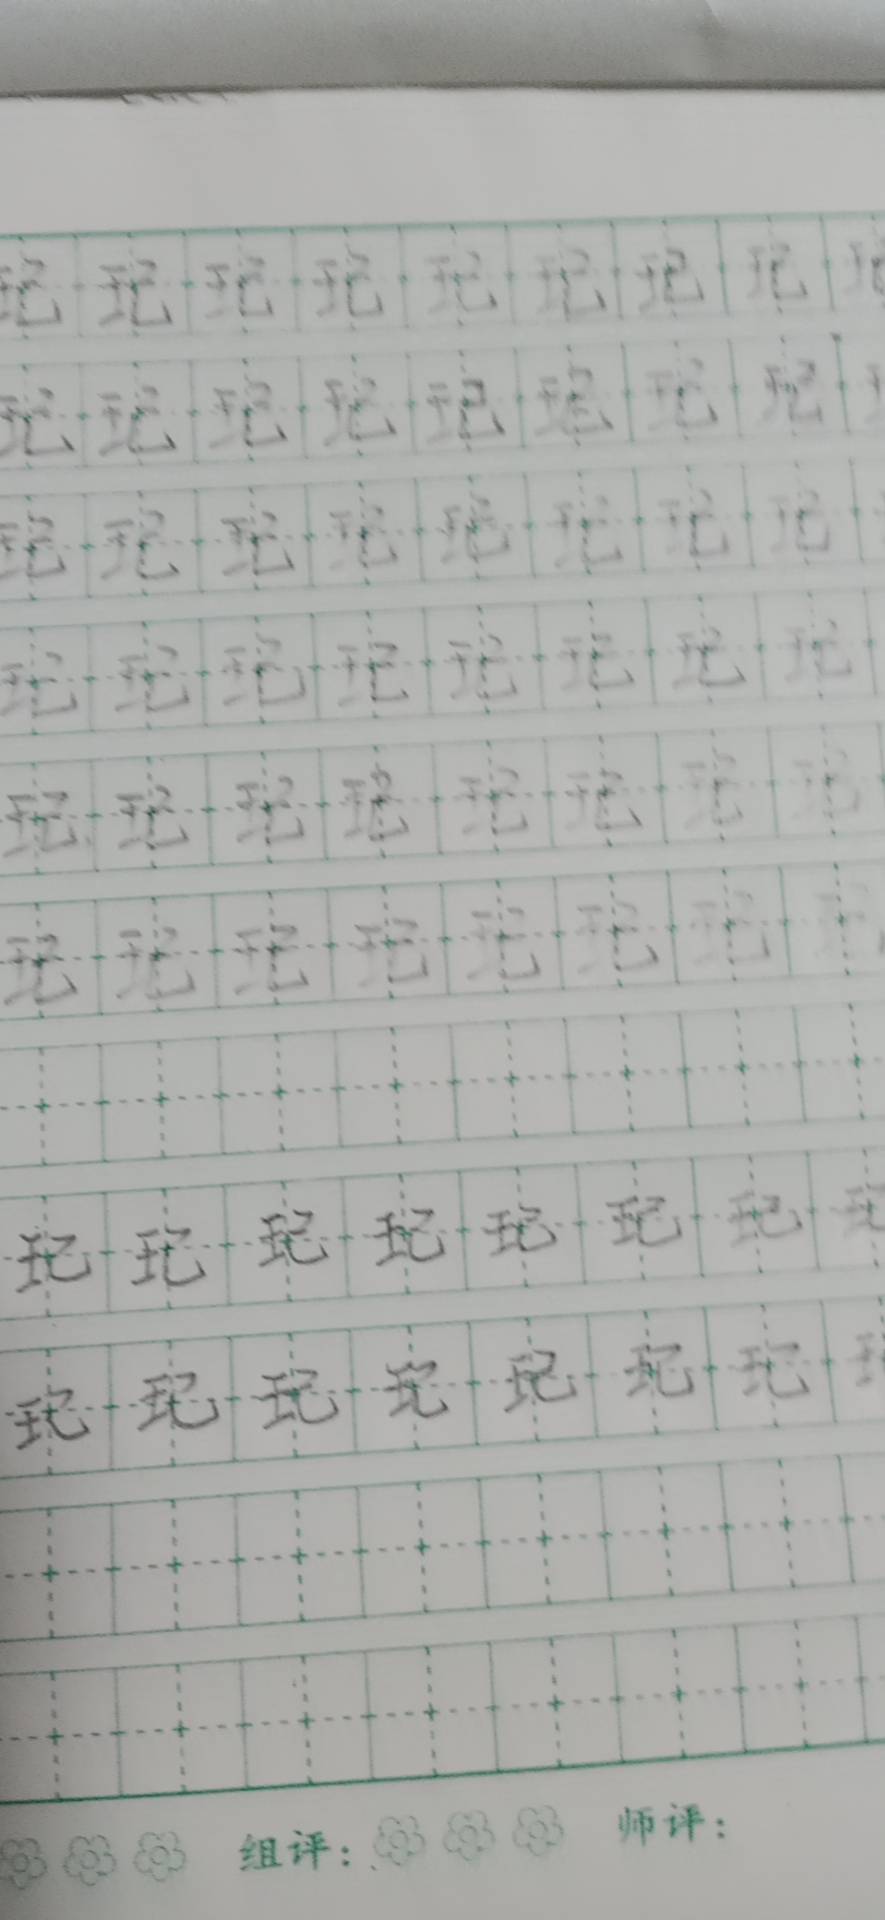 玘玘玘玘玘玘玘玘
玘玘玘玘玘玘玘玘
玘玘玘玘玘玘玘玘
玘玘玘玘玘玘玘玘
玘玘玘玘玘玘玘玘
玘玘玘玘玘玘玘
玘玘玘玘玘玘玘
玘玘玘玘玘玘玘
组评： 师评：